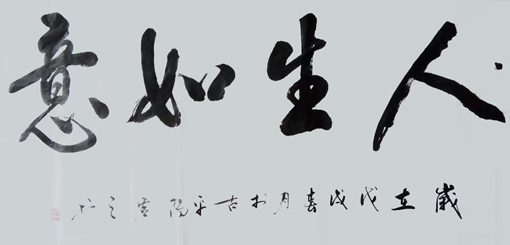 人生如意
歲在戊戌春月於古平陽雲之